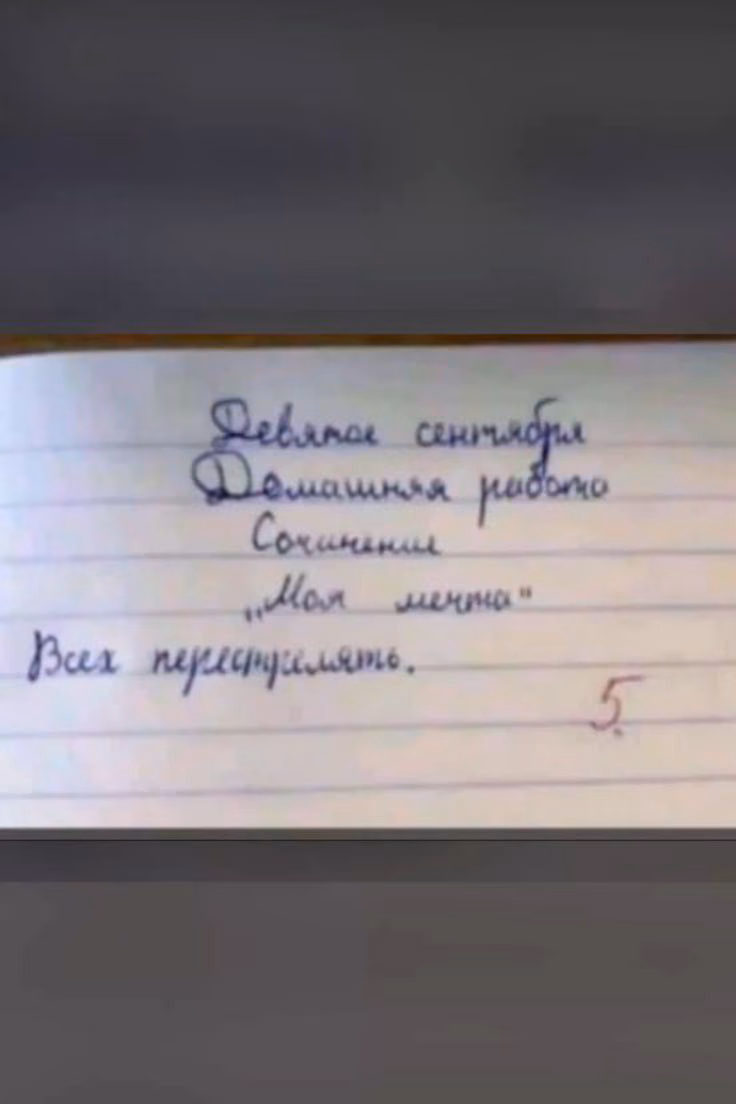 Девятое сентября
Домашняя работа
Сочинение
„Моя мечта"
Всех перестрелять.
5.